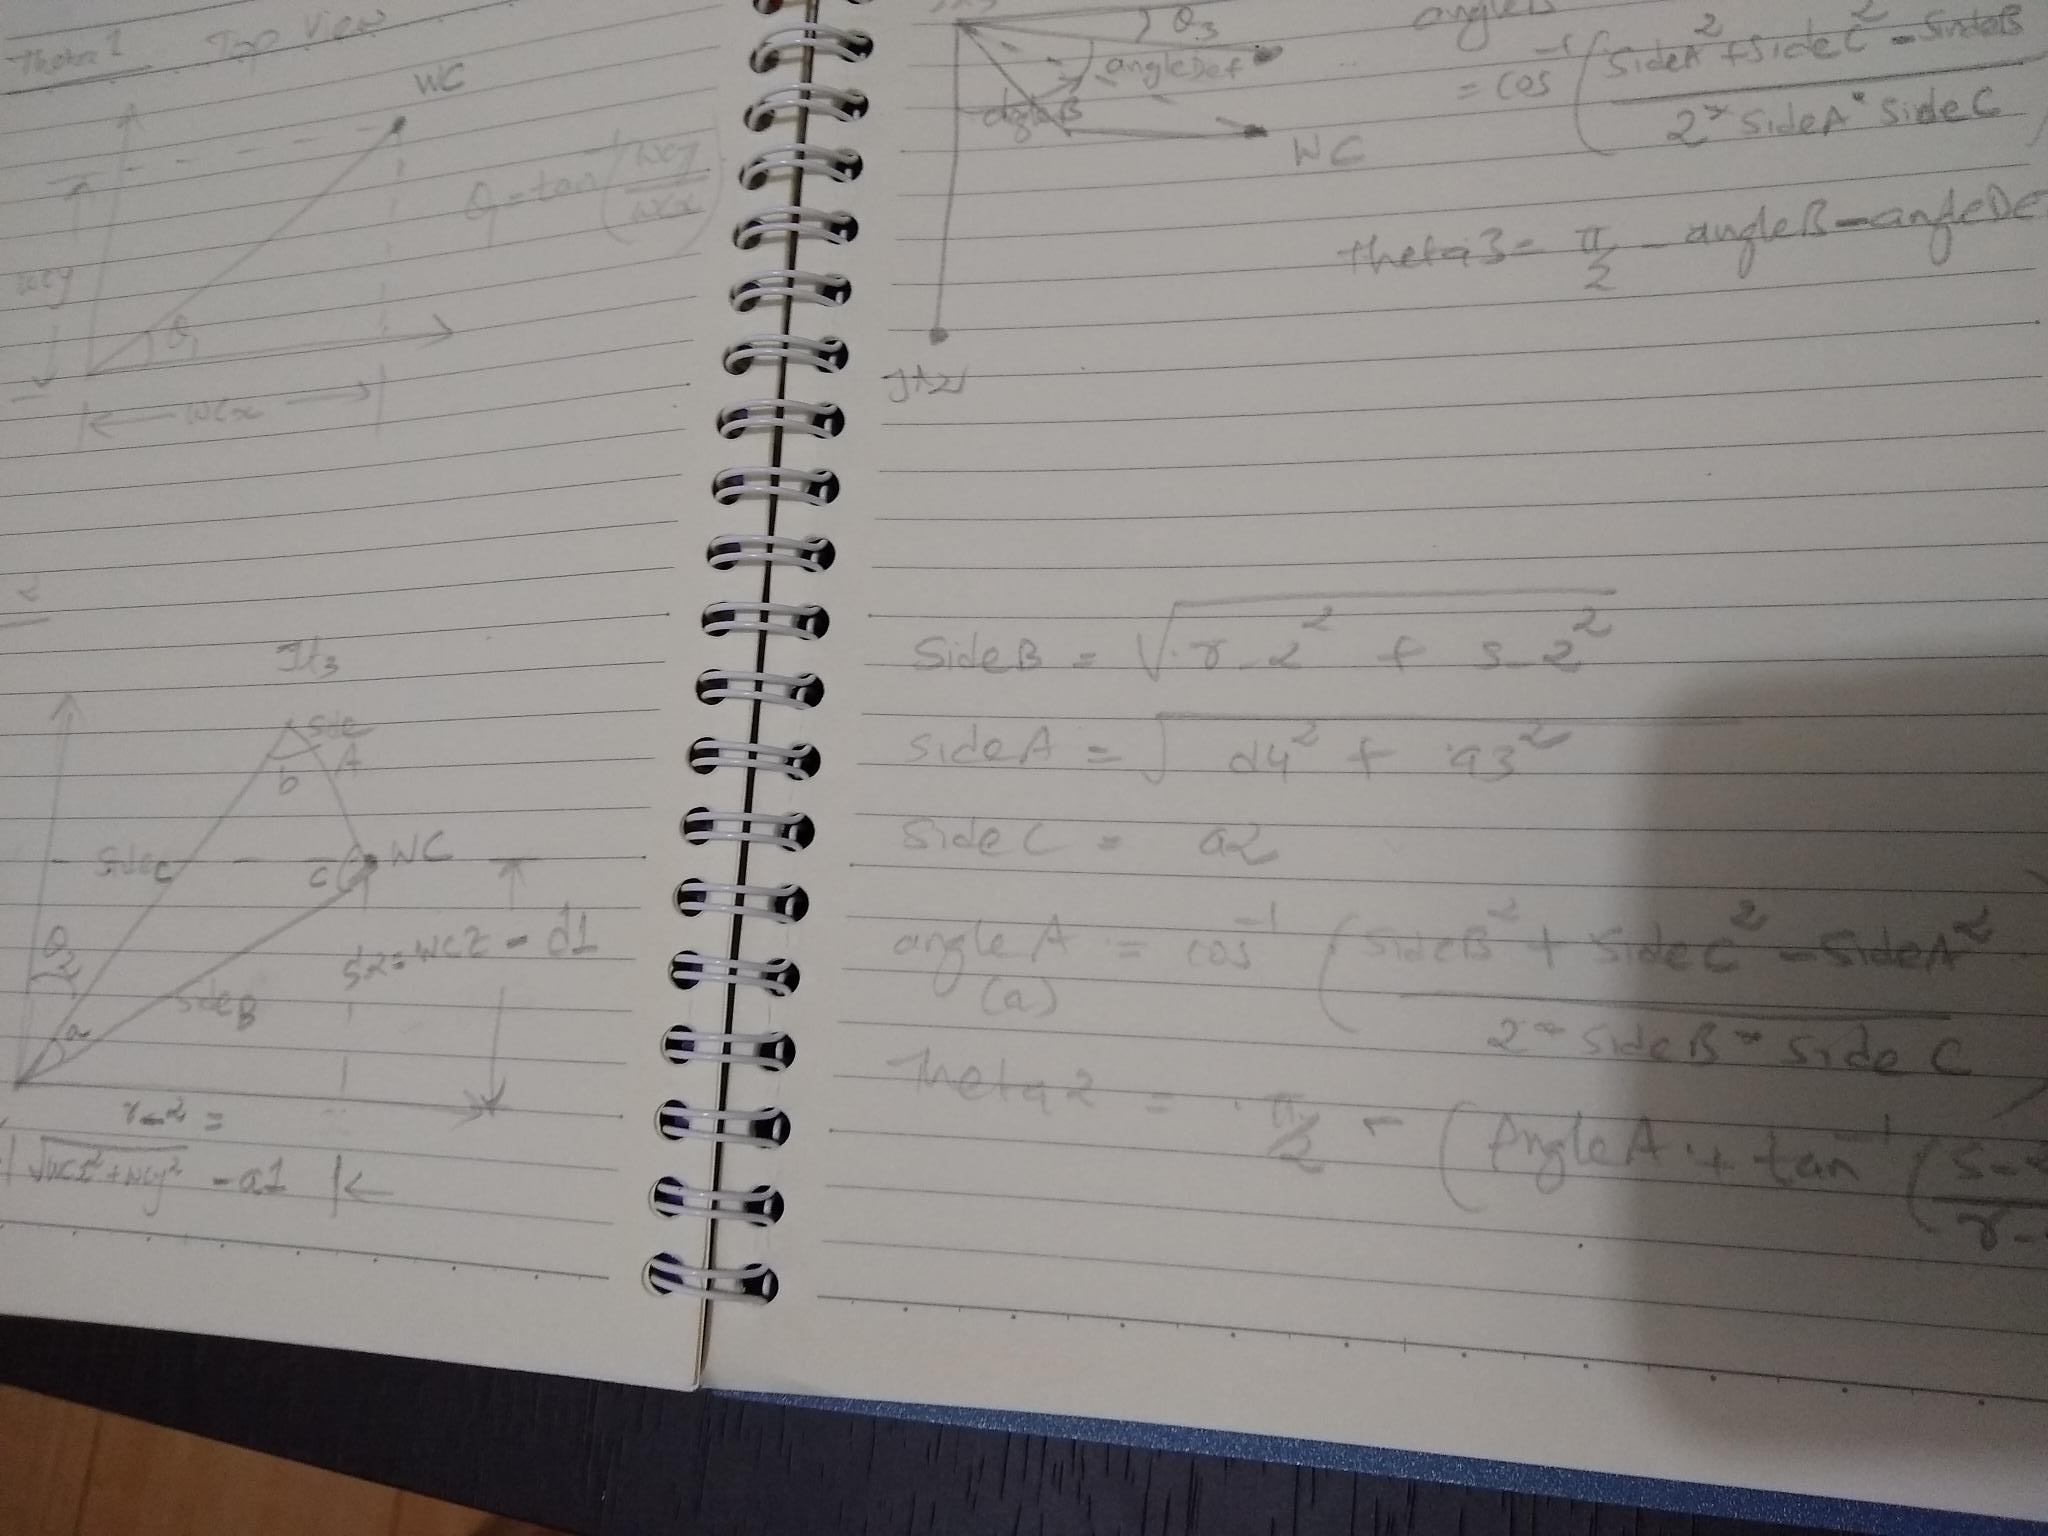 Theta 1 Top View
WC
θ1 = tan⁻¹ (wcy / wcx)
wcy
θ1
wcx
2
Jt3
side A
b
side C
c
WC
θ2
s2 = WCZ - d1
side B
a
r_2 =
√wcx² + wcy² - a1
θ3
angleDef
angleB
WC
Jt2
angleB
= cos⁻¹ (sideA² + sideC² - sideB / 2 * sideA * sideC)
theta3 = π/2 - angleB - angleDe
SideB = √r_2² + s_2²
sideA = √d4² + a3²
sideC = a2
angleA = cos⁻¹ (sideB² + sideC² - sideA² / 2 * sideB * sideC)
(a)
Theta2 = π/2 - (AngleA + tan⁻¹ (s_ / r_